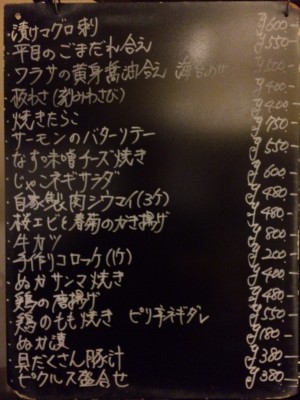 ・漬けマグロ刺 ¥600-
・平目のごまだれ合え ¥550-
・ワラサの黄身醤油合え 海苔
・板わさ(刻みわさび) ¥400-
・焼きたらこ ¥400-
・サーモンのバターソテー ¥750-
・なすの味噌チーズ焼き ¥550-
・じゃこネギサラダ ¥600-
・自家製肉シウマイ(3ケ) ¥480-
・桜エビと春菊のかき揚げ ¥480-
・牛カツ ¥800-
・手作りコロッケ(1ケ) ¥200-
・ぬかサンマ焼き ¥400-
・鶏の唐揚げ ¥480-
・鶏のもも焼き ピリ辛ネギダレ ¥550-
・ぬか漬 ¥180-
・具だくさん豚汁 ¥380-
・ピクルス盛合せ ¥380-